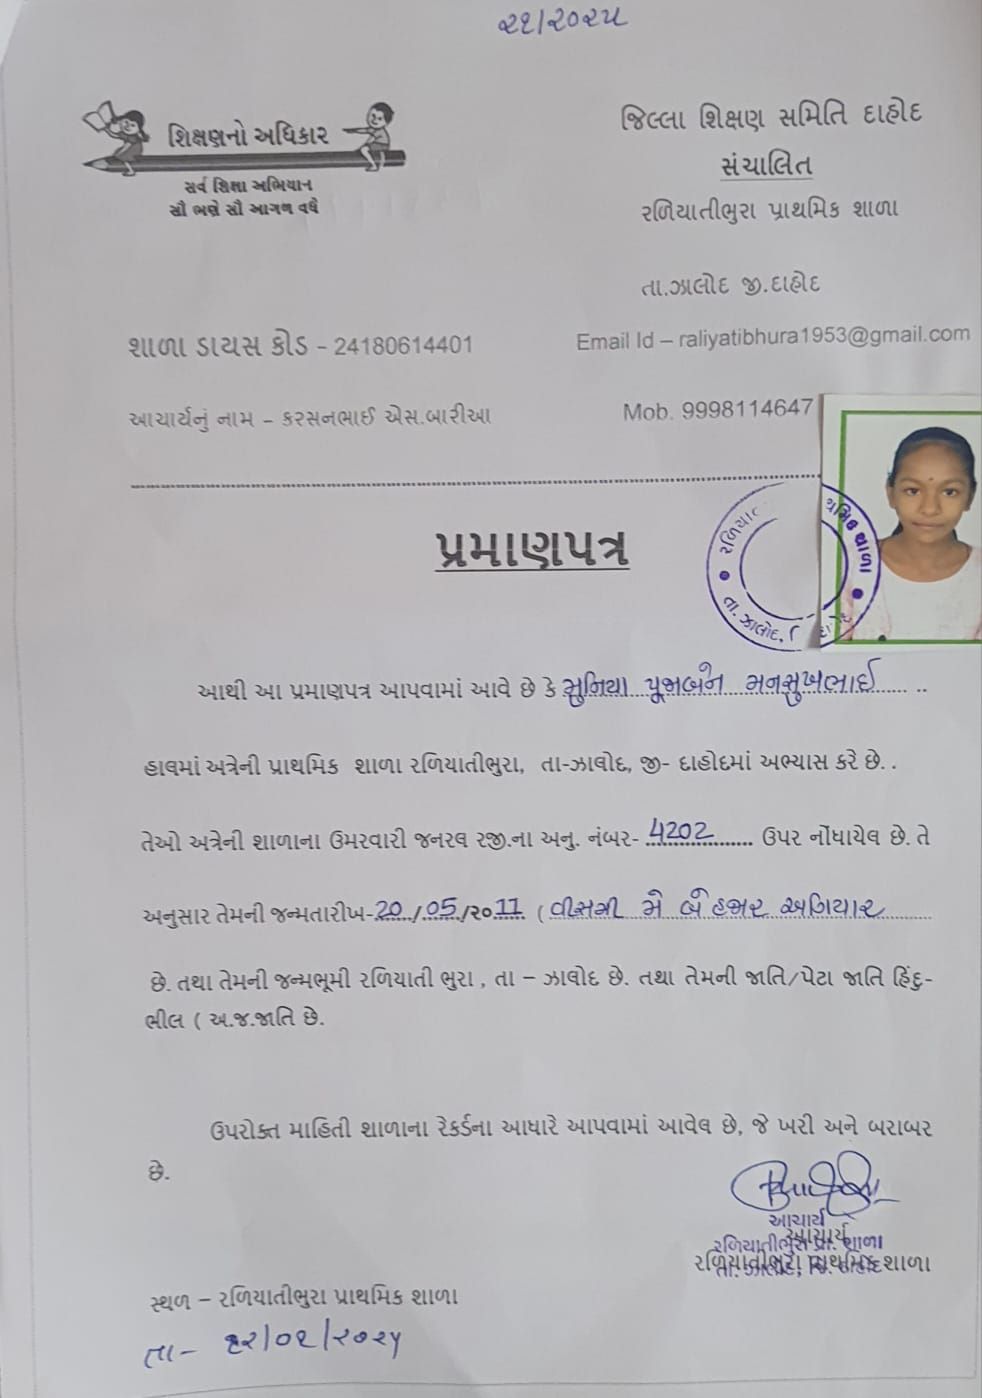 ૨૧/૨૦૨૫
શિક્ષણનો અધિકાર
સર્વ શિક્ષા અભિયાન
સૌ ભણે સૌ આગળ વધે
જિલ્લા શિક્ષણ સમિતિ દાહોદ
સંચાલિત
રળિયાતીભુરા પ્રાથમિક શાળા
તા.ઝાલોદ જી.દાહોદ
શાળા ડાયસ કોડ - 24180614401
Email Id – raliyatibhura1953@gmail.com
આચાર્યનું નામ - કરસનભાઈ એસ.બારીઆ
Mob. 9998114647
પ્રમાણપત્ર
આથી આ પ્રમાણપત્ર આપવામાં આવે છે કે મુનિયા પૂજાબેન મનસુખભાઈ
હાલમાં અત્રેની પ્રાથમિક શાળા રળિયાતીભુરા, તા-ઝાલોદ, જી- દાહોદમાં અભ્યાસ કરે છે. .
તેઓ અત્રેની શાળાના ઉમરવારી જનરલ રજી.ના અનુ. નંબર- 4202 ઉપર નોંધાયેલ છે. તે
અનુસાર તેમની જન્મતારીખ-20/05/૨૦11 (વીસમી મે બે હજાર અગિયાર
છે. તથા તેમની જન્મભૂમી રળિયાતી ભુરા , તા – ઝાલોદ છે. તથા તેમની જાતિ/પેટા જાતિ હિંદુ-
ભીલ ( અ.જ.જાતિ છે.
ઉપરોક્ત માહિતી શાળાના રેકર્ડના આધારે આપવામાં આવેલ છે, જે ખરી અને બરાબર
છે.
આચાર્ય
આચાર્ય
રળિયાતીભુરા પ્રા. શાળા
રળિયાતીભુરા પ્રાથમિક શાળા
સ્થળ – રળિયાતીભુરા પ્રાથમિક શાળા
તા-